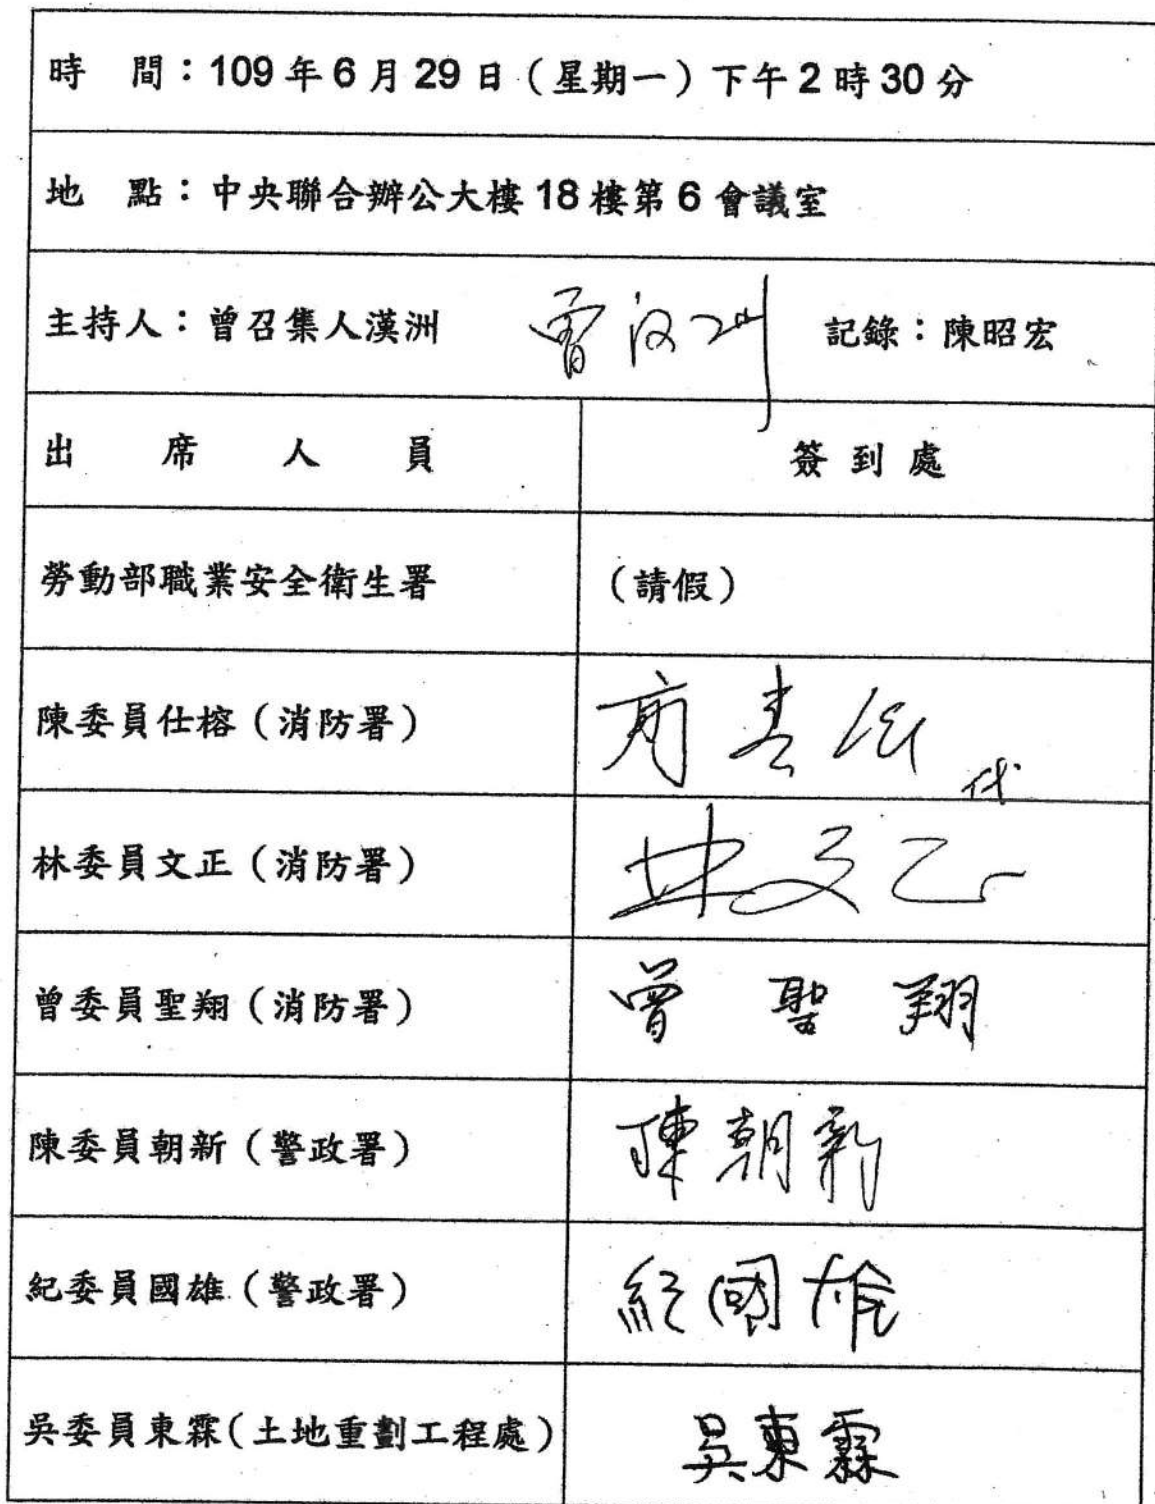 時　間：109年6月29日（星期一）下午2時30分
地　點：中央聯合辦公大樓18樓第6會議室
主持人：曾召集人漢洲　曾汉洲　記錄：陳昭宏
出　席　人　員　簽到處
勞動部職業安全衛生署　（請假）
陳委員仕榕（消防署）　代
林委員文正（消防署）　林文正
曾委員聖翔（消防署）　曾聖翔
陳委員朝新（警政署）　陳朝新
紀委員國雄（警政署）　紀國雄
吳委員東霖（土地重劃工程處）　吳東霖